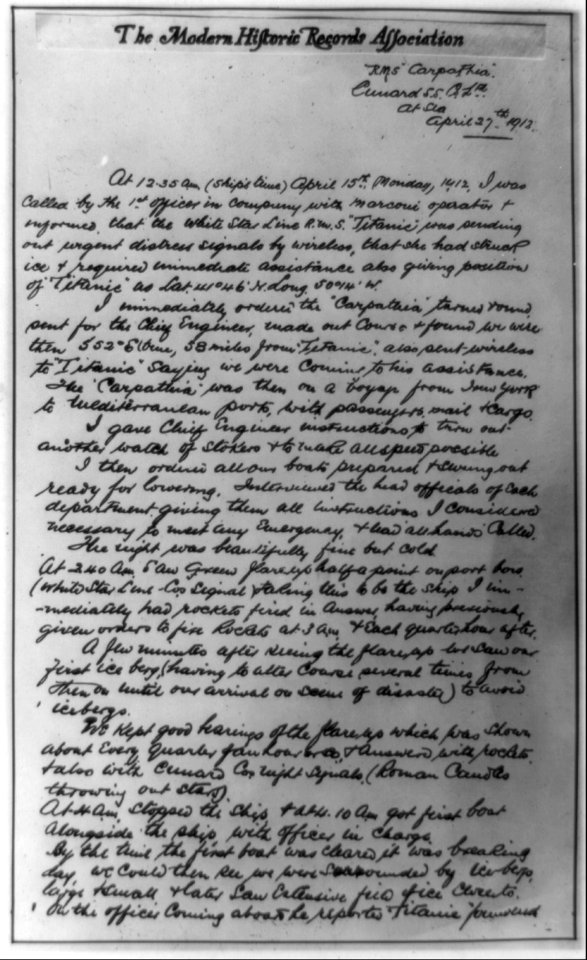 The Modern Historic Records Association
"RMS "Carpathia".
Cunard S.S. Co. Ltd
At Sea
April 27th 1912.
At 12.35 am (Ship's time) April 15th, Monday, 1912, I was
called by the 1st officer in company with marconi operator &
informed, that the White Star Line R.M.S. "Titanic" was sending
out urgent distress signals by wireless, that she had struck
ice & required immediate assistance also giving position
of "Titanic" as Lat 41° 46' N. Long. 50° 14' W.
I immediately ordered the "Carpathia" turned round,
sent for the Chief Engineer, made out Course & found we were
then S 52° E true, 58 miles from "Titanic", also sent wireless
to "Titanic" saying we were coming to his assistance.
The "Carpathia" was then on a voyage from New York
to Mediterranean ports, with passengers, mail & cargo.
I gave Chief Engineer instructions to turn out
another watch of Stokers & to make all speed possible
I then ordered all our boats prepared & swung out
ready for lowering. Interviewed the head officials of each
department giving them all instructions I considered
necessary to meet any Emergency, & had all hands called.
The night was beautifully fine but cold
At 2.40 am, saw Green flareup half a point on port bow
(White Star Line Cos Signal) & taking this to be the ship I im-
-mediately had rockets fired in answer, having previously
given orders to fire Rockets at 3 am, & Each quarter hour after.
A few minutes after seeing the flareup we saw our
first ice berg, (having to alter course several times from
then on until our arrival on scene of disaster) to avoid
icebergs.
We kept good bearings of the flareup which was shown
about Every quarter of an hour or so, & Answered with rockets
& also with Cunard Cos night signals, (Roman Candles
throwing out stars).
At 4 am, stopped the ship, & at 4.10 am got first boat
alongside the ship, with officer in charge.
By the time the first boat was cleared it was breaking
day, we could then see we were surrounded by ice bergs,
large & small & later saw Extensive field of ice
On the officer coming aboard he reported "Titanic" foundered